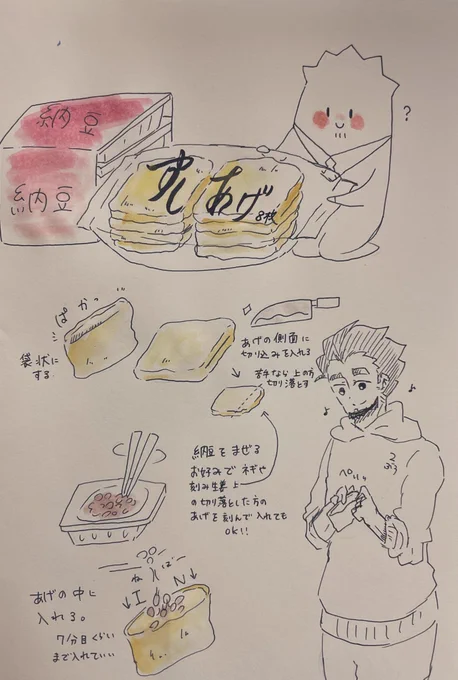 納豆
納豆
すしあげ
8枚
?
ぱかっ
袋状に
する
あげの側面に
切り込みを入れる
苦手なら上の方
切り落とす
納豆をまぜる
お好みでネギや
刻み生姜 上
の切り落とした方の
あげを刻んで入れても
OK!!
ねばー
IN
あげの中に
入れる。
7分目くらい
まで入れていい